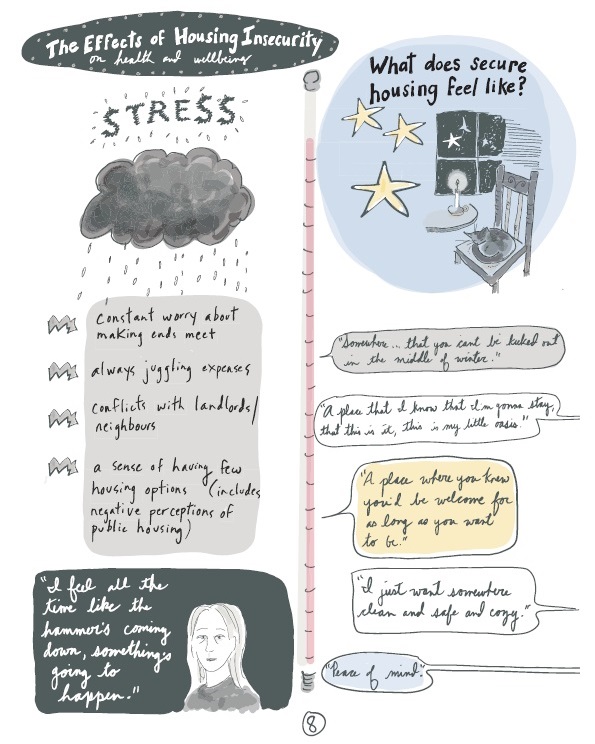 The Effects of Housing Insecurity
on health and wellbeing
STRESS
constant worry about
making ends meet
always juggling expenses
conflicts with landlords/
neighbours
a sense of having few
housing options (includes
negative perceptions of
public housing)
"I feel all the
time like the
hammer's coming
down, something's
going to
happen."
What does secure
housing feel like?
"Somewhere... that you cant be kicked out
in the middle of winter."
"A place that I know that I'm gonna stay,
that this is it, this is my little oasis."
"A place where you know
you'd be welcome for
as long as you want
to be."
"I just want somewhere
clean and safe and cozy."
"Peace of mind."
8